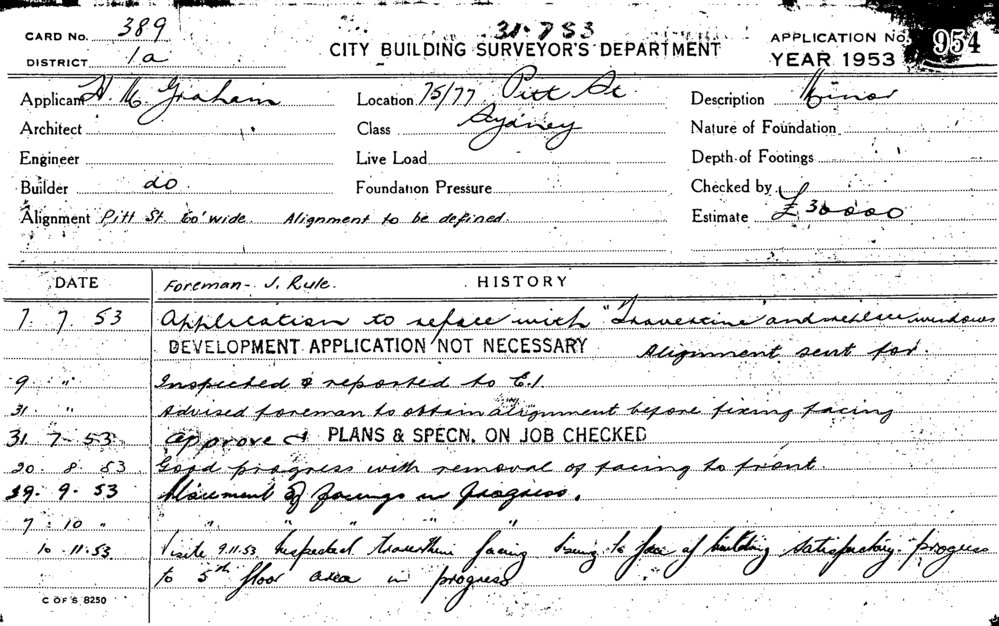 31·7 53
CARD No. 389
CITY BUILDING SURVEYOR'S DEPARTMENT
APPLICATION No. 954
DISTRICT 1a
YEAR 1953
Applicant H. M. Graham Location 75/77 Pitt St. Description Minor
Architect Class Sydney Nature of Foundation
Engineer Live Load Depth of Footings
Builder do. Foundation Pressure Checked by
Alignment Pitt St 60' wide. Alignment to be defined. Estimate £30000
DATE Foreman - J. Rule. HISTORY
7. 7. 53 Application to reface with "Travertine" and replace windows
DEVELOPMENT APPLICATION NOT NECESSARY Alignment sent for.
9 " Inspected & reported to E.1
31. " Advised foreman to obtain alignment before fixing facing
31. 7. 53 Approved PLANS & SPECN. ON JOB CHECKED
20. 8. 53 Good progress with removal of facing to front
29. 9. 53 of facings in progress.
7 : 10 " " " " " "
10. 11. 53. Visite 9.11.53. Inspected travertine facing fixing to face of building satisfactory progress
to 5th floor area in progress
C OF S 8250